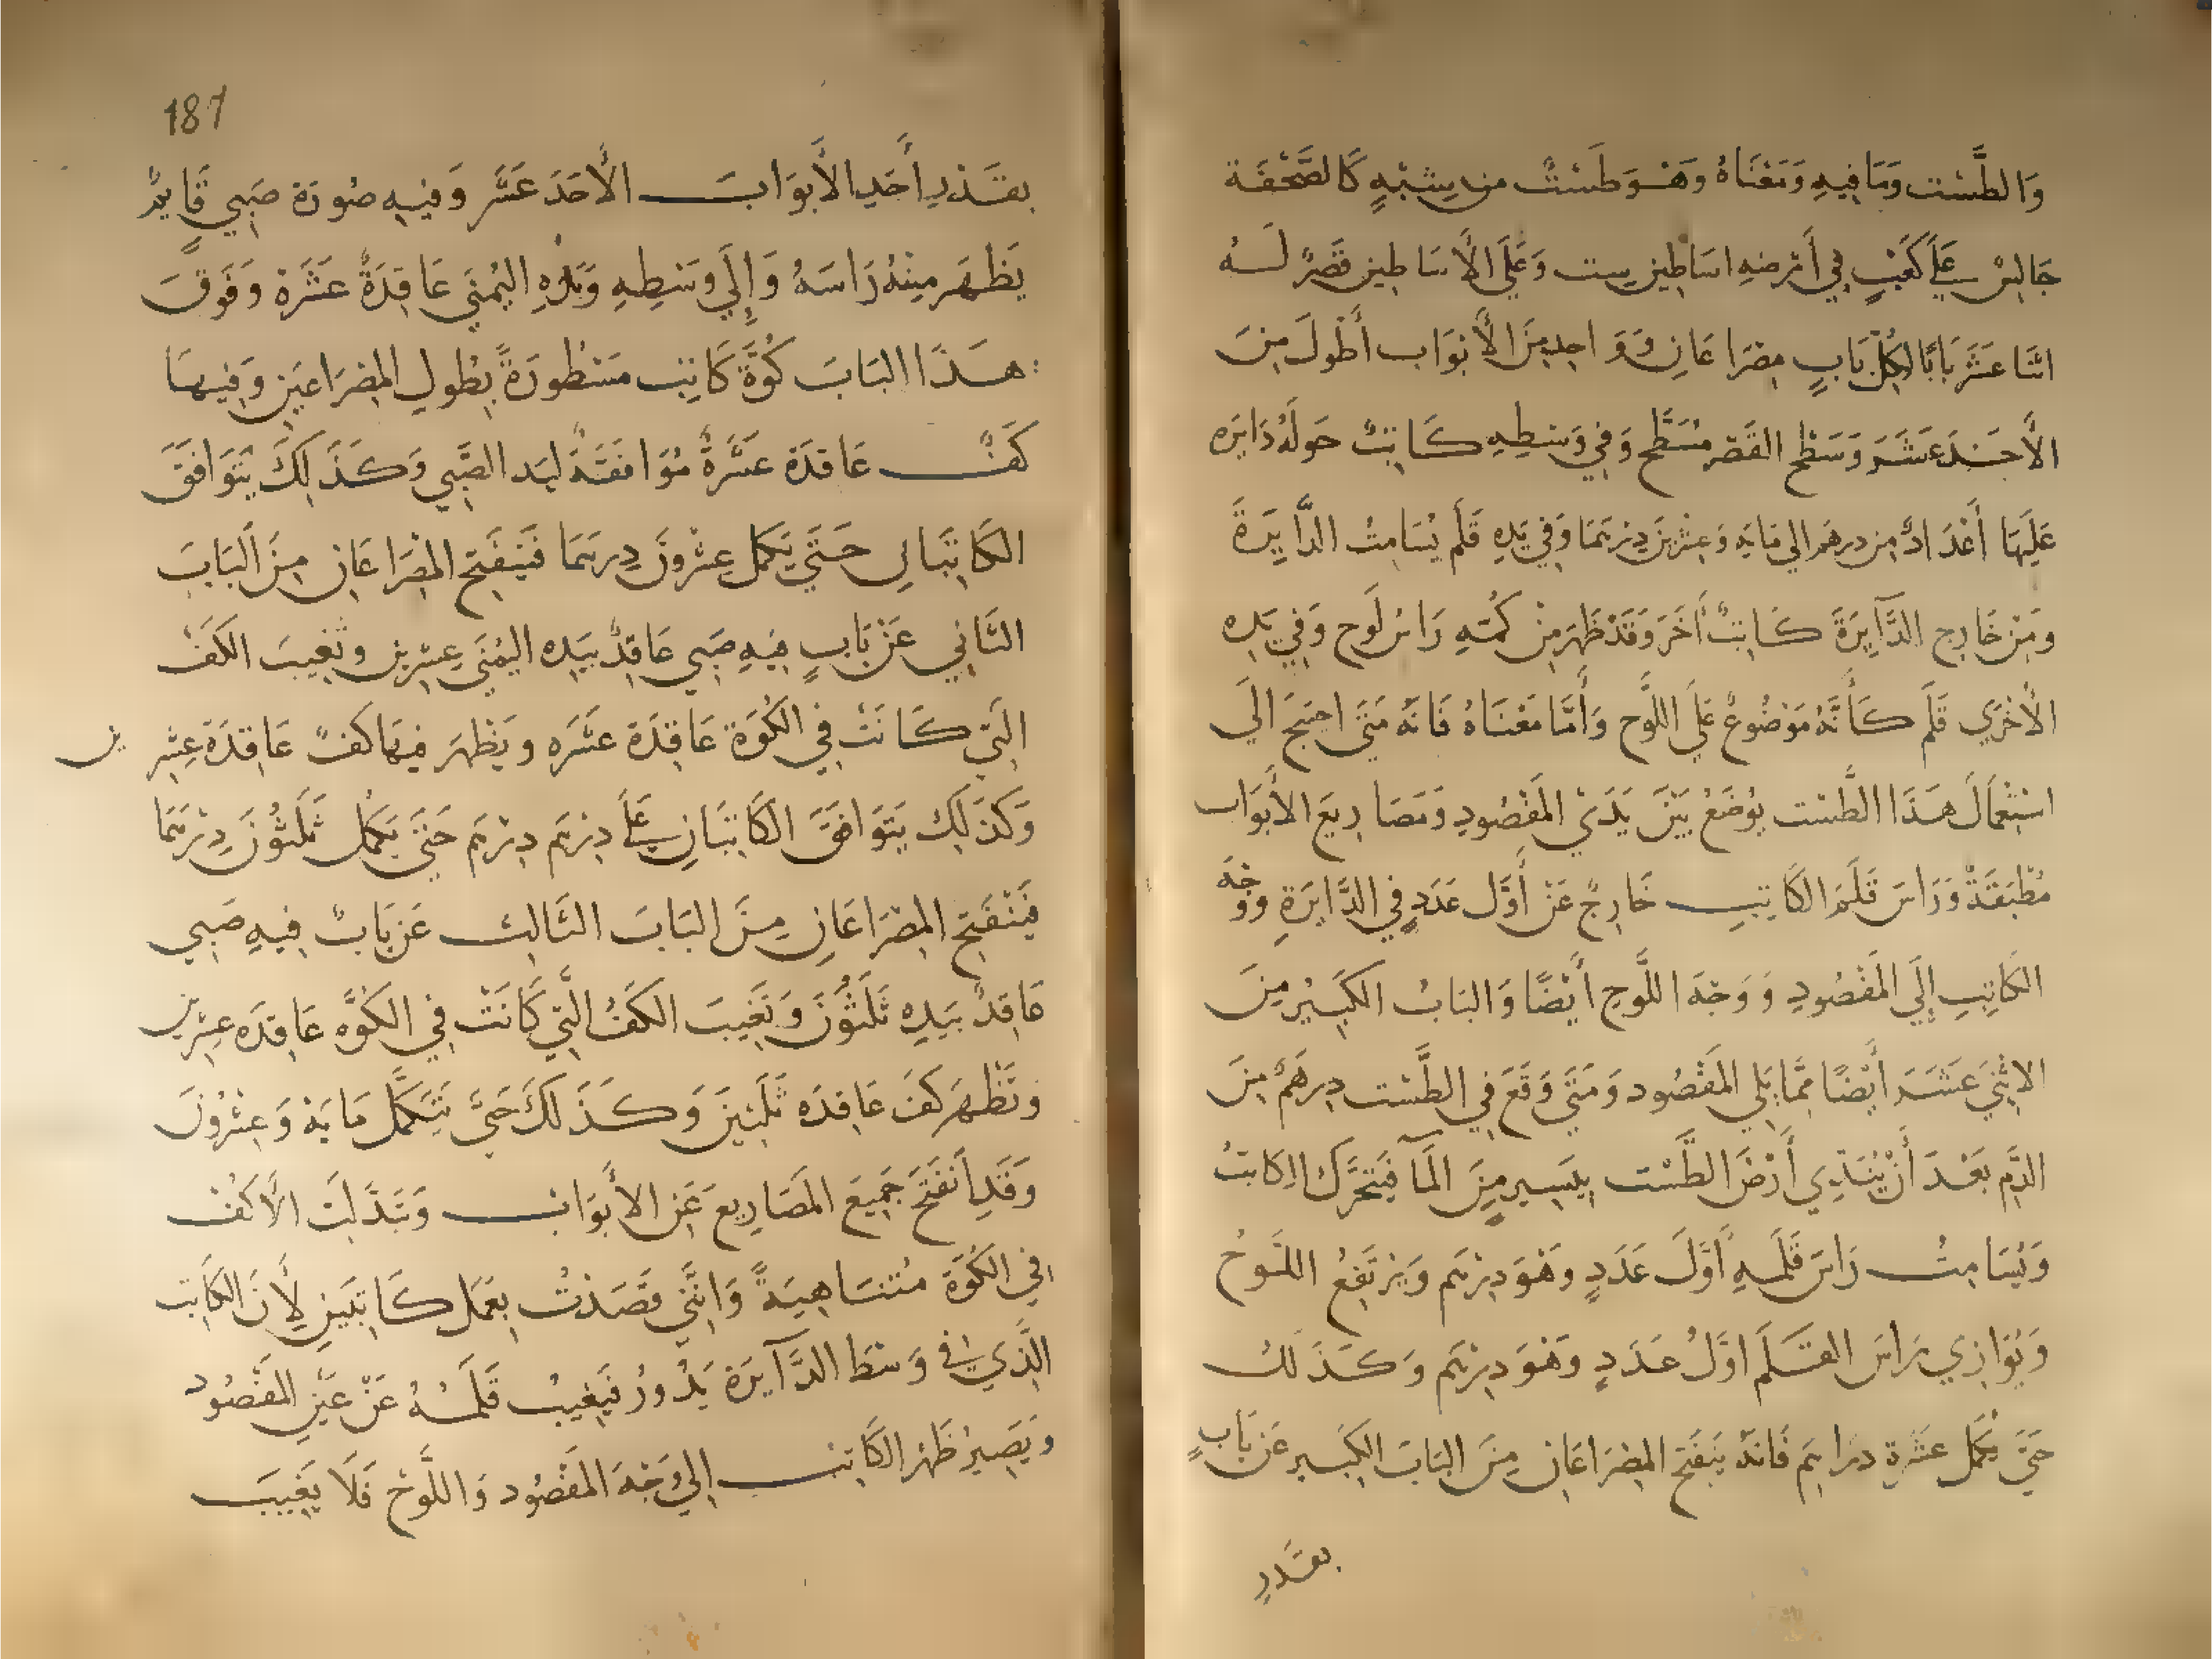 وَالطَّشْت وَمَا فِيهِ وَمَعْنَاهُ وَهُوَ طَشْتٌ من شِبْهٍ كَالصَّحْفَة
جَالِسٌ عَلَى كَعْبٍ فِي أَرْضِهِ اسَاطِين ست وَعَلَى الأَسَاطِين قَصْرٌ لَهُ
اثْنَا عَشَرَ بَابًا لِكُلّ بَابٍ مِصْرَاعَانِ وَوَاحِد مِنَ الأَبْوَاب أَطْوَلَ مِنَ
الأَحَدَ عَشَرَ وَسَطْح القَصْر مُسَطَّح وَفِي وَسَطِهِ كَاتِبٌ حَوْلَهُ دَايرَه
عَلَيْهَا أَعْدَادٌ مِن درهَم الي مَايَه وَعِشْرِينَ دِرْهَمًا وَفِي يَدِهِ قَلَم يُسَامِتُ الدَّايِرَةَ
وَمِنْ خَارِج الدَّآيِرَةَ كَاتِبٌ أَخَر وَقَدْ ظَهَرَ مِنْ كُمِّهِ رَاسُ لَوح وَفِي يَدِه
الأُخْرَي قَلَم كَأَنَّهُ مَوْضُوعٌ عَلَى اللَّوح وَأَمَّا مَعْنَاهُ فَانَّه مَتَي احتِيجَ الَي
اسْتِعْمَالَ هَذَا الطَّشْت يُوضَعُ بَيْنَ يَدَيْ المَفْصُودِ وَمَصَارِيعَ الأَبْوَاب
مُطْبَقَةٌ وَرَاسَ قَلَمَ الكَاتِبِ خَارِجٌ عَنْ أَوَّل عَدَدٍ فِي الدَّايرَةِ وَوَجْهَ
الكَاتِبِ إِلَي المَفْصُودِ وَوَجْهَ اللَّوحِ أَيْضًا وَالبَابُ الكَبِيْر مِنَ
الاثْنَي عَشَرَ أَيْضًا مِمَّا يَلي المَفْصُود وَمَتَي وَقَعَ فِي الطَّشْت دِرهَمٌ مِنَ
الدَّم بَعْدَ أَنْ يُنَدِّي أَرْضَ الطَّشْت بِيَسِيرٍ مِنَ المَآ فَيَتَحَرَّك الكَاتبُ
وَيُسَامِتُ رَاسَ قَلَمِهِ أَوَّلَ عَدَدٍ وَهُوَ دِرْهَم وَيَرْتَفِعُ اللَّوحُ
وَيُوَازِي رَاسَ القَلَم اوَّلُ عَدَدٍ وَهُوَ دِرْهَم وَكَذَلكَ
حَتَّي يَكْمُل عَشَرَةِ دَرَاهِم فَانَّه يَنفَتِح المِصْرَاعَانِ مِنَ البَابَ الكَبِير عَن بَابٍ
بقدرِ
187
بقَدْرِ أَحَدِ الأَبوَابَ الأَحَدَ عَشَر وَفِيهِ صُورَة صَبِي قَايِمٌ
يَظْهَر مِنْهُ رَاسَهُ وَإِلَي وَسَطِهِ وَيَدِهِ اليُمنَي عَاقِدَةٌ عَشَرَةْ وَفَوقَ
هَذَا البَابَ كُوَّةً كَانِت مَسْطُورَةً بِطُولِ المِصْرَاعَين وَفِيهَا
كَفٌّ عَاقدَة عَشَرَةٌ مُوَافقَةً ليَد الصَّبِي وَكَذَلِكَ يَتَوَافَقَ
الكَاتِبَانِ حَتَّي يَكمل عِشْرونَ دِرهَمًا فَيَنفَتِح المِصْرَاعَانِ مِنَ البَابَ
الثَّانِي عَنْ بَابٍ فِيهِ صَبي عَاقِدٌ بِيَدِه اليُمْنَي عِشرِين وَتَغِيبَ الكَفّ
الَّتِي كَانَتْ فِي الكُوَّة عَاقِدَة عَشَرَه وَيَظْهَر فِيهَا كَفٌّ عَاقِدَة عِشرين
وَكَذَلِك يَتَوَافَقَ الكَاتِبَانِ عَلَى دِرْهَم دِرْهَم حَتَّي يَكْمُل ثَلَثُونَ دِرْهَمًا
فَيَنْفَتِح المِصْرَاعَانِ مِنَ البَابَ الثَّالث عَن بَابٌ فِيهِ صَبِي
عَاقِدٌ بِيَدِهِ ثَلَثُونَ وَتَغِيبَ الكَفُّ الَّتِي كَانَتْ فِي الكُوَّه عَاقِدَه عِشرين
وَتَظْهَر كَفّ عَاقِدَه ثَلَثِينَ وَكَذَلَكَ حَتَّي يَتَكَمَّل مَايَة وَعِشْرُونَ
وَقَدِ اَنفَتَحَ جَمِيعَ المَصَارِيعَ عَنِ الأَبوَاب وَتَبَدَّلَتَ الأَكُفّ
فِي الكُوَّة مُتَشَاهِبَةً وَانَّنِي قَصَدْتُ بِعَمَل كَاتِبَين لأَنَّ الكَاتِب
الَّذِي في وَسَط الدَّآيرَة يَدُورُ فَيَغِيبُ قَلَمُهُ عَنْ عَينِ المَفْصُود
وَيَصِيرُ ظَهْر الكَاتِب إِلي وَجْهَ المَفْصُود وَاللَّوحْ فَلَا يَغِيبَ